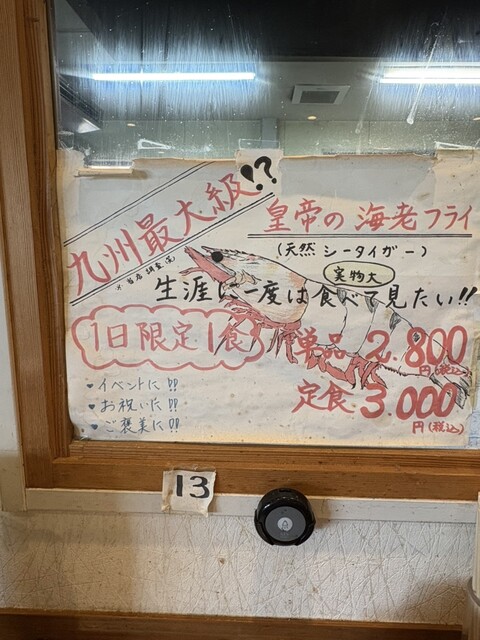 九州最大級!?
※当店調査(仮)
皇帝の海老フライ
(天然シータイガー)
実物大
生涯に一度は食べて見たい!!
1日限定1食
単品2.800
円(税込)
定食3.000
円(税込)
♥イベントに!!
♥お祝いに!!
♥ご褒美に!!
13